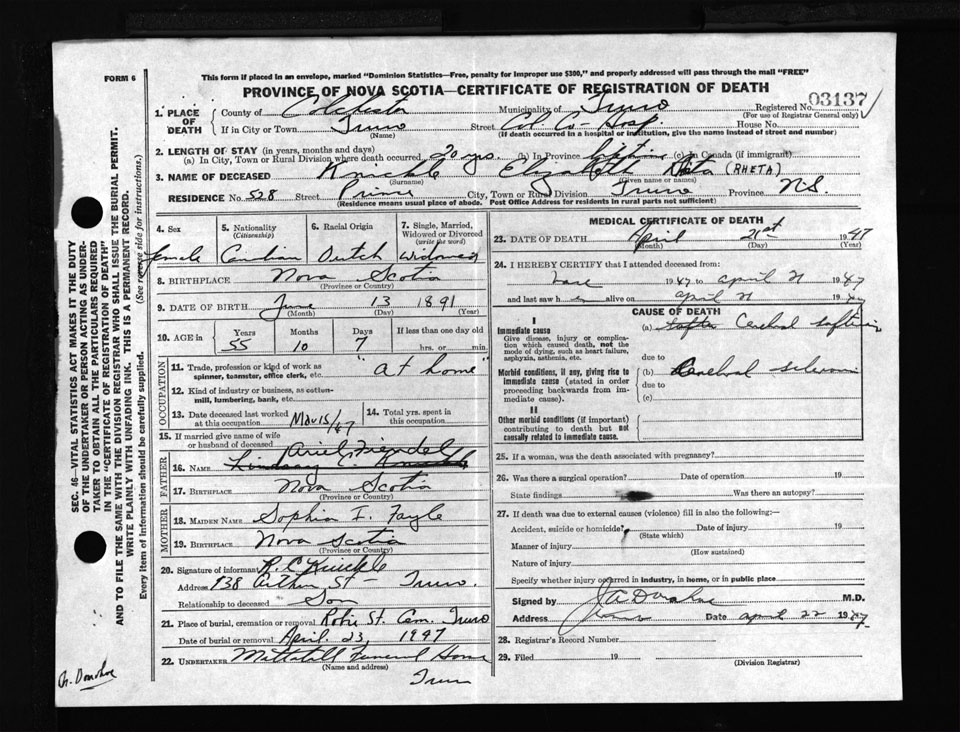 FORM 6
This form if placed in an envelope, marked "Dominion Statistics—Free, penalty for improper use $300," and properly addressed will pass through the mail "FREE"
PROVINCE OF NOVA SCOTIA—CERTIFICATE OF REGISTRATION OF DEATH
03137
Registered No.
(For use of Registrar General only)
1. PLACE OF DEATH
County of Colchester Municipality of Truro
If in City or Town Truro Street Col. Co. Hosp. House No.
(Name) (If death occurred in a hospital or institution, give the name instead of street and number)
2. LENGTH OF STAY (in years, months and days)
(a) In City, Town or Rural Division where death occurred 20 yrs. (b) In Province Lifetime (c) In Canada (if immigrant)
3. NAME OF DECEASED Knickle Elizabeth Reta (RHETA)
(Surname) (Given name or names)
RESIDENCE No. 528 Street Prince City, Town or Rural Division Truro Province N.S.
(Residence means usual place of abode. Post Office Address for residents in rural parts not sufficient)
4. Sex 5. Nationality (Citizenship) 6. Racial Origin 7. Single, Married, Widowed or Divorced (write the word)
female Canadian Dutch Widowed
8. BIRTHPLACE Nova Scotia
(Province or Country)
9. DATE OF BIRTH June 13 1891
(Month) (Day) (Year)
10. AGE in Years Months Days If less than one day old
55 10 7 hrs. or min.
OCCUPATION
11. Trade, profession or kind of work as spinner, teamster, office clerk, etc. "at home"
12. Kind of industry or business, as cotton-mill, lumbering, bank, etc.
13. Date deceased last worked at this occupation Mar 15/47 14. Total yrs. spent in this occupation
15. If married give name of wife or husband of deceased
FATHER
16. NAME Lindsay C. Knickle
17. BIRTHPLACE Nova Scotia
(Province or Country)
MOTHER
18. MAIDEN NAME Sophia I.
19. BIRTHPLACE Nova Scotia
(Province or Country)
20. Signature of informant R. C. Knickle
Address 138 Arthur St — Truro.
Relationship to deceased Son
21. Place of burial, cremation or removal Robie St. Cem. Truro
Date of burial or removal April 23, 1947
22. UNDERTAKER Mattatall Funeral Home
(Name and address)
Truro
MEDICAL CERTIFICATE OF DEATH
23. DATE OF DEATH April 21st 1947
(Month) (Day) (Year)
24. I HEREBY CERTIFY that I attended deceased from:
1947 to april 21 1947
and last saw h er alive on april 21 1947
CAUSE OF DEATH
I
Immediate cause
Give disease, injury or complication which caused death, not the mode of dying, such as heart failure, asphyxia, asthenia, etc.
(a) Cerebral softening
due to
Morbid conditions, if any, giving rise to immediate cause (stated in order proceeding backwards from immediate cause).
(b) Cerebral
due to
(c)
II
Other morbid conditions (if important) contributing to death but not causally related to immediate cause.
25. If a woman, was the death associated with pregnancy?
26. Was there a surgical operation? Date of operation 19
State findings Was there an autopsy?
27. If death was due to external causes (violence) fill in also the following:
Accident, suicide or homicide? Date of injury 19
(State which)
Manner of injury
(How sustained)
Nature of injury
Specify whether injury occurred in industry, in home, or in public place
Signed by J A Donahoe M.D.
Address Truro Date april 22 1947
28. Registrar's Record Number
29. Filed 19
(Division Registrar)
SEC. 46—VITAL STATISTICS ACT MAKES IT THE DUTY OF THE UNDERTAKER OR PERSON ACTING AS UNDERTAKER TO OBTAIN ALL THE PARTICULARS REQUIRED IN THE "CERTIFICATE OF REGISTRATION OF DEATH" AND TO FILE THE SAME WITH THE DIVISION REGISTRAR WHO SHALL ISSUE THE BURIAL PERMIT.
WRITE PLAINLY WITH UNFADING INK. THIS IS A PERMANENT RECORD.
Every item of information should be carefully supplied. (See reverse side for instructions.)
Donahoe